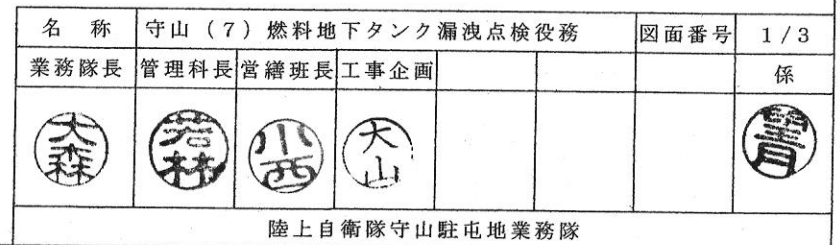 名 称 守山（７）燃料地下タンク漏洩点検役務 図面番号 1/3
業務隊長 管理科長 営繕班長 工事企画 係
大森 若林 小西 大山 菅
陸上自衛隊守山駐屯地業務隊